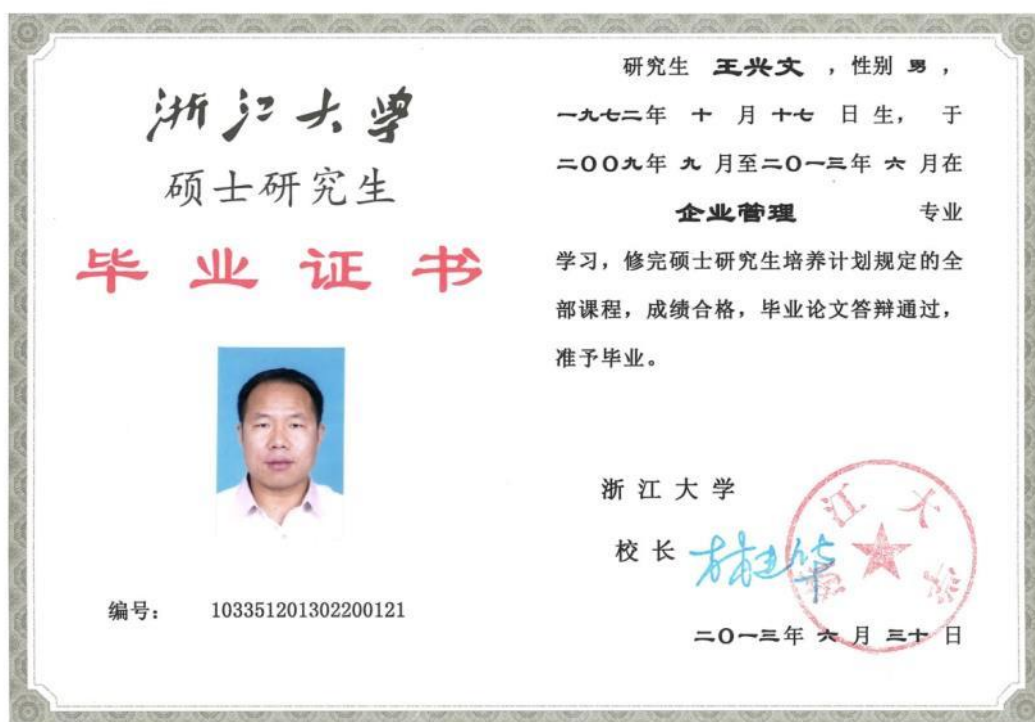 浙江大学
硕士研究生
毕业证书
编号: 103351201302200121
研究生 王兴文 ,性别 男,
一九七二年 十 月 十七 日 生, 于
二00九年 九 月至二0一三年 六 月在
企业管理 专业
学习,修完硕士研究生培养计划规定的全
部课程,成绩合格,毕业论文答辩通过,
准予毕业。
浙 江 大 学
校 长 林建华
二0一三年 六 月 三十 日
浙江大学